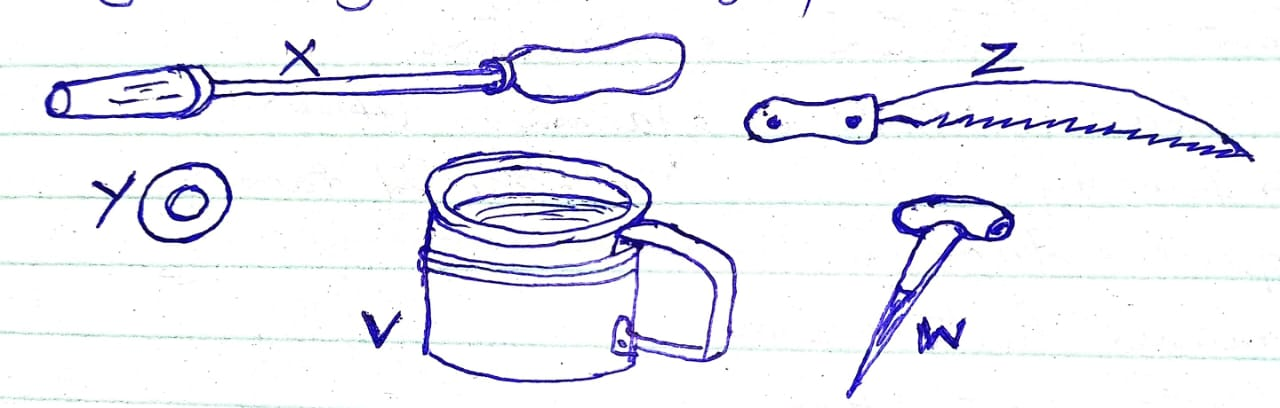 X
Z
Y
V
W